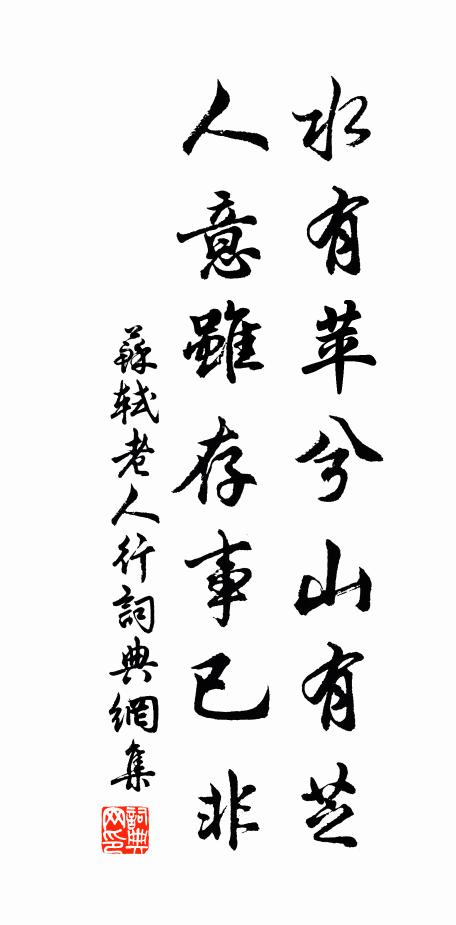 水有苹兮山有芝
人意雖存事已非
蘇軾老人行詞典網集
詞典网印